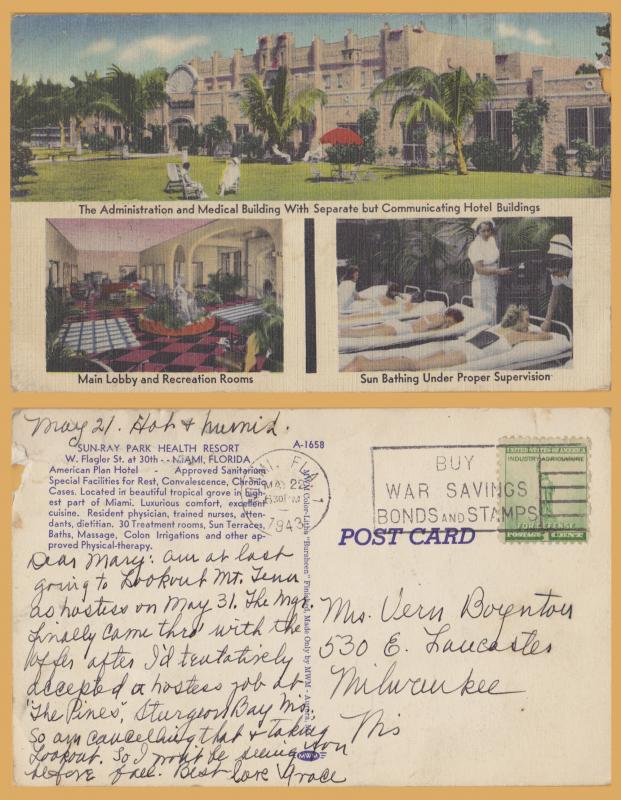 The Administration and Medical Building With Separate but Communicating Hotel Buildings
Main Lobby and Recreation Rooms
Sun Bathing Under Proper Supervision
May 21. Hot & humid.
SUN-RAY PARK HEALTH RESORT
W. Flagler St. at 30th -- MIAMI, FLORIDA
American Plan Hotel - Approved Sanitarium
Special Facilities for Rest, Convalescence, Chronic
Cases. Located in beautiful tropical grove in high-
est part of Miami. Luxurious comfort, excellent
cuisine. Resident physician, trained nurses, atten-
dants, dietitian. 30 Treatment rooms, Sun Terraces,
Baths, Massage, Colon Irrigations and other ap-
proved Physical-therapy.
Dear Mary: am at last
going to Lookout Mt. Tenn
as hostess on May 31. The Mgr.
finally came thro' with the
offer after I'd tentatively
accepted a hostess job at
"The Pines", Sturgeon Bay
So am cancelling that & taking
Lookout. So I won't be seeing you
before fall. Best love Grace
A-1658
MWM Color-Litho "Sunsheen" Finished. Made Only by MWM - Aurora,
MWM
MIAMI, FLA.
MAY 22
630 PM
1943
1
BUY
WAR SAVINGS
BONDS AND STAMPS
UNITED STATES OF AMERICA
INDUSTRY AGRICULTURE
FOR DEFENSE
POSTAGE 1 CENT
POST CARD
Mrs. Vern Boynton
530 E. Lancaster
Milwaukee
Wis